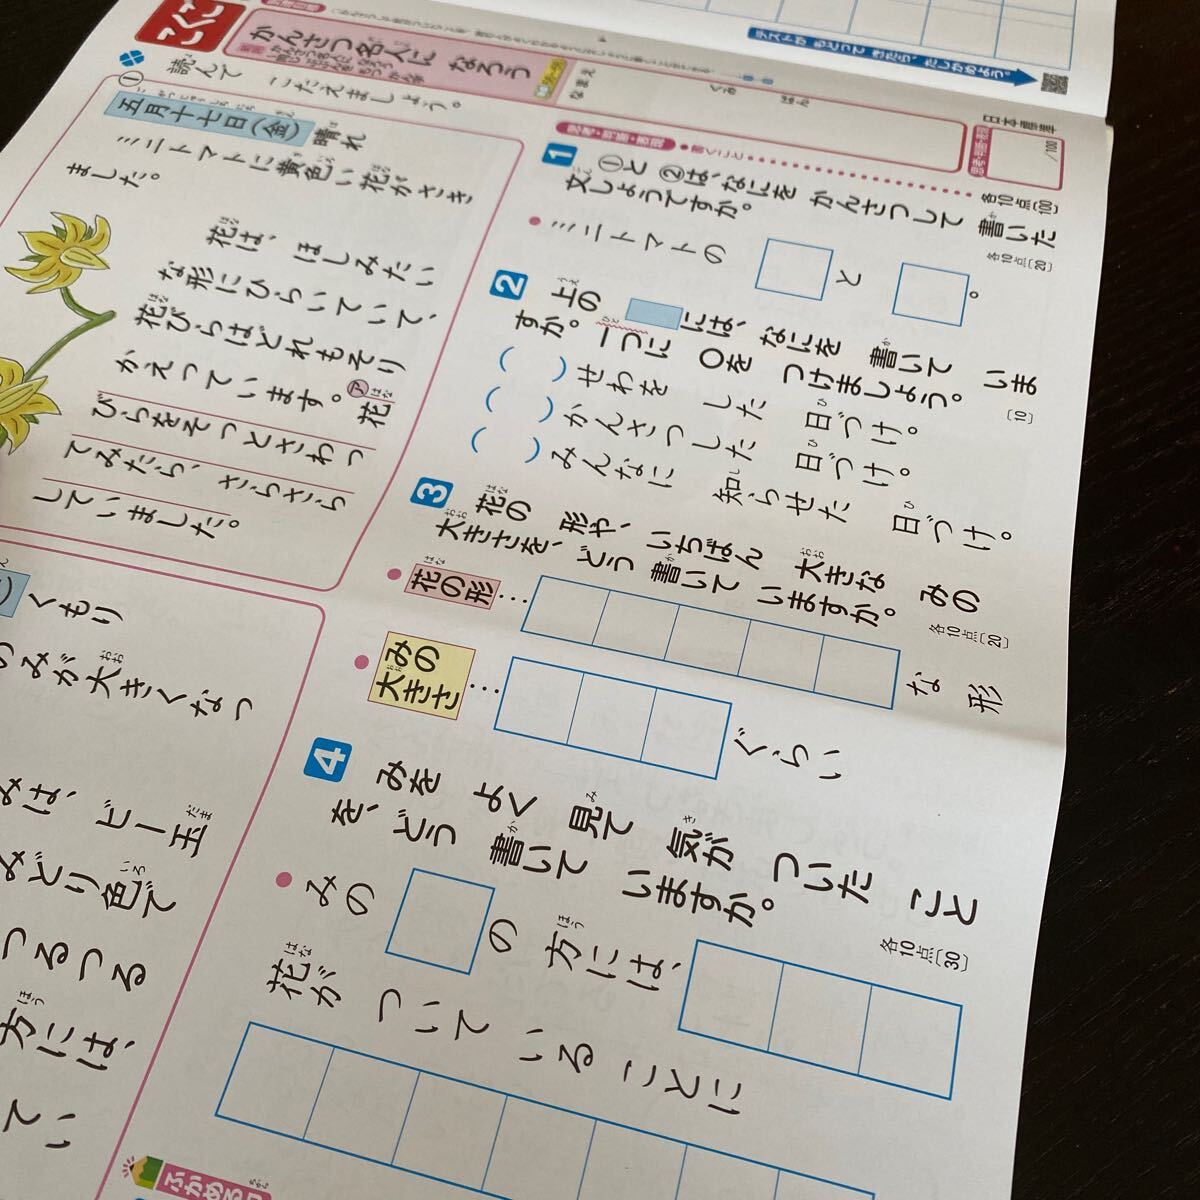 こくご
かんさつ名人に なろう
なまえ
くみ
ばん
日本標準
テストが もどって きたら、たしかめよう。
思考・判断・表現
書くこと
/100
各10点〔100〕
読んで こたえましょう。
①
五月十七日(金) 晴れ
ミニトマトに黄色い花がさき
ました。
花は、ほしみたい
な形にひらいていて、
花びらはどれもそり
かえっています。㋐花
びらをそっとさわっ
てみたら、さらさら
していました。
くもり
みが大きくなっ
みは、ビー玉
みどり色で
つるつる
方には、
てい
1 ①と ②は、なにを かんさつして 書いた
文しょうですか。
各10点〔20〕
ミニトマトの □と □。
2 上の には、なにを 書いて いま
すか。一つに ○を つけましょう。
〔10〕
( ) せわを した 日づけ。
( ) かんさつした 日づけ。
( ) みんなに 知らせた 日づけ。
3 花の 形や、いちばん 大きな みの
大きさを、どう 書いて いますか。
各10点〔20〕
花の形… な 形
みの
大きさ… ぐらい
4 みを よく 見て 気が ついた こと
を、どう 書いて いますか。
各10点〔30〕
みの □の 方には、
花が ついて いる ことに
ふかめる